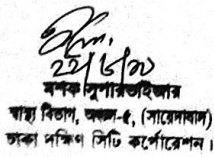 ২৭/৮/২০
মশক সুপারভাইজার
স্বাস্থ্য বিভাগ, অঞ্চল-৫, (সায়েদাবাদ)
ঢাকা দক্ষিণ সিটি কর্পোরেশন।